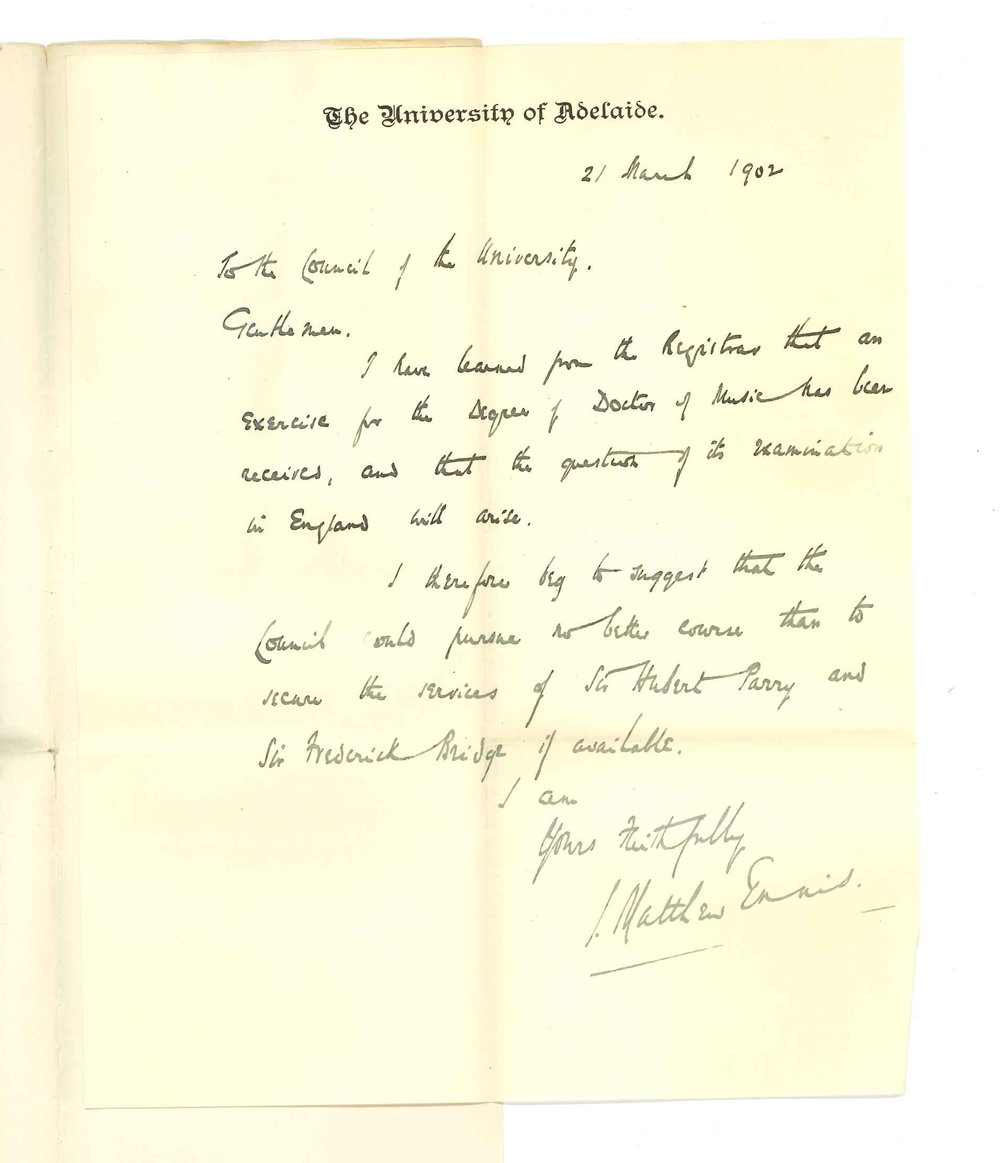 The University of Adelaide.
21 March 1902
To the Council of the University.
Gentlemen.
I have learned from the Registrar that an
Exercise for the Degree of Doctor of Music has been
received, and that the question of its examination
in England will arise.
I therefore beg to suggest that the
Council could pursue no better course than to
secure the services of Sir Hubert Parry and
Sir Frederick Bridge if available.
I am
Yours Faithfully
J. Matthew Ennis.